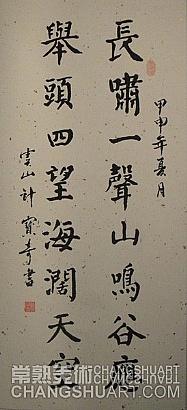 甲申年夏月
長嘯一聲山鳴谷應
舉頭四望海闊天空
雲山計寶奇書
常熟美術